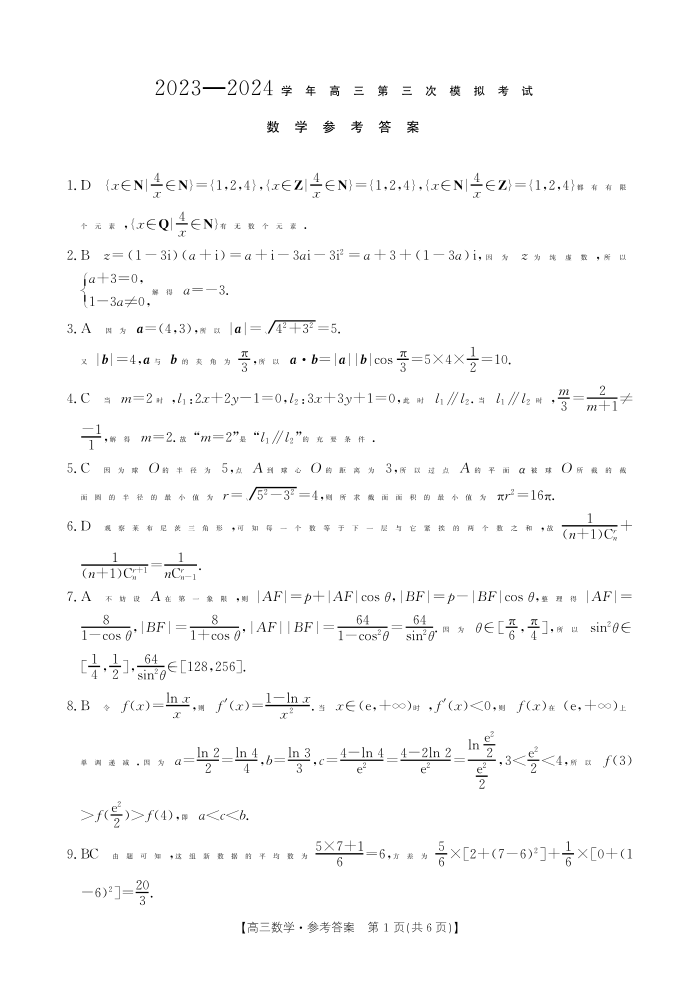 2023—2024学年高三第三次模拟考试
数学参考答案
1. D {x∈N|4/x∈N}={1,2,4},{x∈Z|4/x∈N}={1,2,4},{x∈N|4/x∈Z}={1,2,4}都有有限
个元素,{x∈Q|4/x∈N}有无数个元素.
2. B z=(1-3i)(a+i)=a+i-3ai-3i²=a+3+(1-3a)i,因为 z 为纯虚数,所以
{a+3=0, 1-3a≠0, 解得 a=-3.
3. A 因为 a=(4,3),所以 |a|=√(4²+3²)=5.
又 |b|=4,a 与 b 的夹角为 π/3,所以 a·b=|a||b|cos π/3=5×4×1/2=10.
4. C 当 m=2 时,l₁:2x+2y-1=0,l₂:3x+3y+1=0,此时 l₁∥l₂.当 l₁∥l₂ 时,m/3=2/(m+1)≠
-1/1,解得 m=2.故“m=2”是“l₁∥l₂”的充要条件.
5. C 因为球 O 的半径为 5,点 A 到球心 O 的距离为 3,所以过点 A 的平面 α 被球 O 所截的截
面圆的半径的最小值为 r=√(5²-3²)=4,则所求截面面积的最小值为 πr²=16π.
6. D 观察莱布尼茨三角形,可知每一个数等于下一层与它紧挨的两个数之和,故 1/((n+1)Cₙʳ)+
1/((n+1)Cₙʳ⁺¹)=1/(nCₙ₋₁ʳ).
7. A 不妨设 A 在第一象限,则 |AF|=p+|AF|cos θ,|BF|=p-|BF|cos θ,整理得 |AF|=
8/(1-cos θ),|BF|=8/(1+cos θ),|AF||BF|=64/(1-cos²θ)=64/sin²θ.因为 θ∈[π/6,π/4],所以 sin²θ∈
[1/4,1/2],64/sin²θ∈[128,256].
8. B 令 f(x)=ln x/x,则 f′(x)=(1-ln x)/x².当 x∈(e,+∞)时,f′(x)<0,则 f(x)在 (e,+∞)上
单调递减.因为 a=ln 2/2=ln 4/4,b=ln 3/3,c=(4-ln 4)/e²=(4-2ln 2)/e²=ln(e²/2)/(e²/2),3<e²/2<4,所以 f(3)
>f(e²/2)>f(4),即 a<c<b.
9. BC 由题可知,这组新数据的平均数为 (5×7+1)/6=6,方差为 5/6×[2+(7-6)²]+1/6×[0+(1
-6)²]=20/3.
【高三数学·参考答案 第 1 页(共 6 页)】